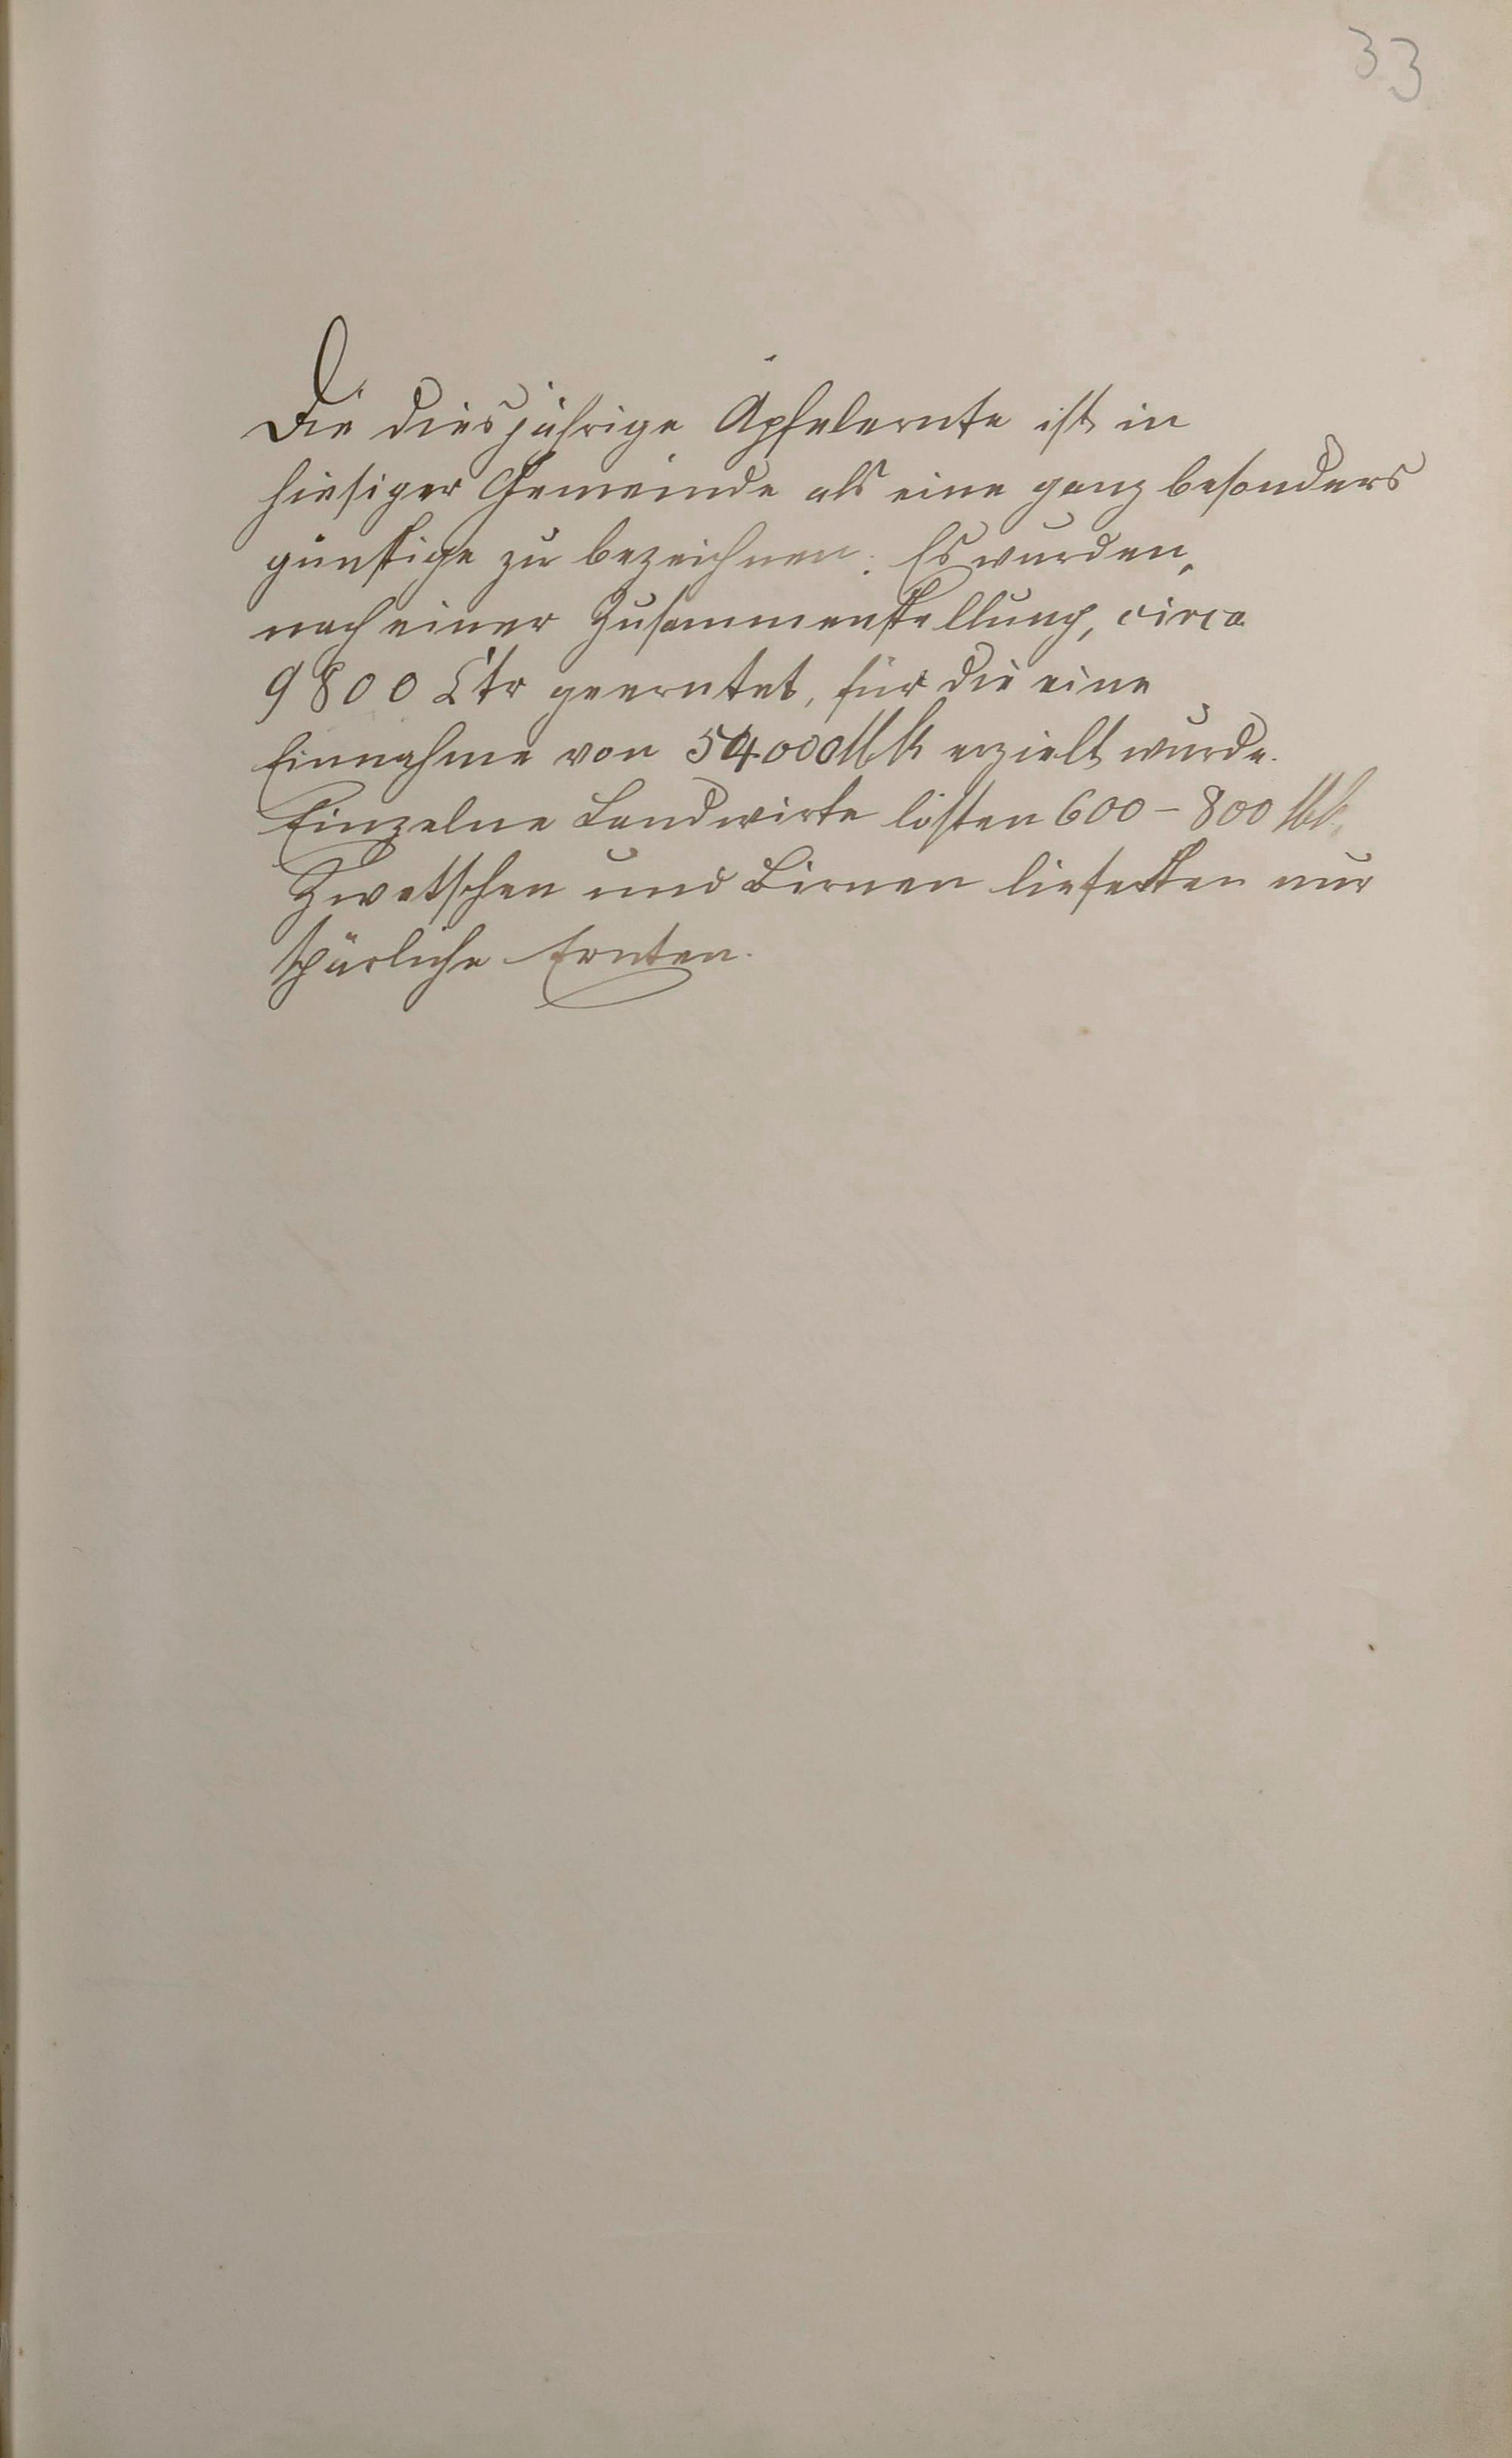 33
Die diesjährige Apfelernte ist in
hiesiger Gemeinde als eine ganz besonders
günstige zu bezeichnen. Es wurden,
nach einer Zusammenstellung, circa
9800 Ctr geerntet, für die eine
Einnahme von 54000 Mk erzielt wurde.
Einzelne Landwirte lösten 600 - 800 Mk.
Zwetschen und Birnen lieferten nur
spärliche Ernten.